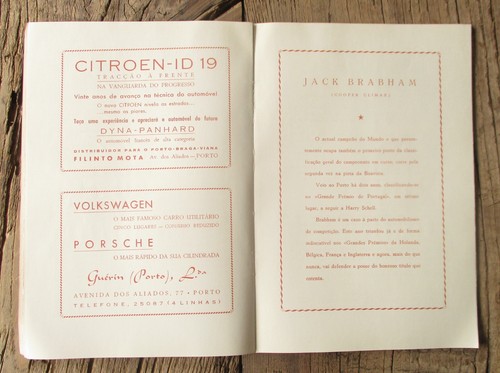 CITROEN-ID 19
TRACÇÃO À FRENTE
NA VANGUARDA DO PROGRESSO
Vinte anos de avanço na técnica do automóvel
O novo CITROEN nivela as estradas...
mesmo as piores.
Tace uma experiência e apreciará o automóvel do futuro
DYNA-PANHARD
O automóvel francês de alta categoria
DISTRIBUIDOR PARA O PORTO-BRAGA-VIANA
FILINTO MOTA Av. dos Aliados—PORTO
VOLKSWAGEN
O MAIS FAMOSO CARRO UTILITÁRIO
CINCO LUGARES — CONSUMO REDUZIDO
PORSCHE
O MAIS RÁPIDO DA SUA CILINDRADA
Guérin (Porto), L.da
AVENIDA DOS ALIADOS, 77 • PORTO
TELEFONE, 25087 (4 LINHAS)
JACK BRABHAM
(COOPER CLIMAX)
O actual campeão do Mundo e que
ocupa também o primeiro posto da
geral do campeonato em curso, corre pela
segunda vez na pista da Boavista.
Veio ao Porto há dois anos
«Grande Prémio de Portugal», em
lugar, a seguir a Harry Schell.
Brabham é um caso à parte do automobilismo
de competição. Este ano triunfou já e de forma
indiscutível nos «Grandes Prémios» da Holanda,
Bélgica, França e Inglaterra e agora, mais do que
nunca, vai defender a posse do honroso título que
ostenta.